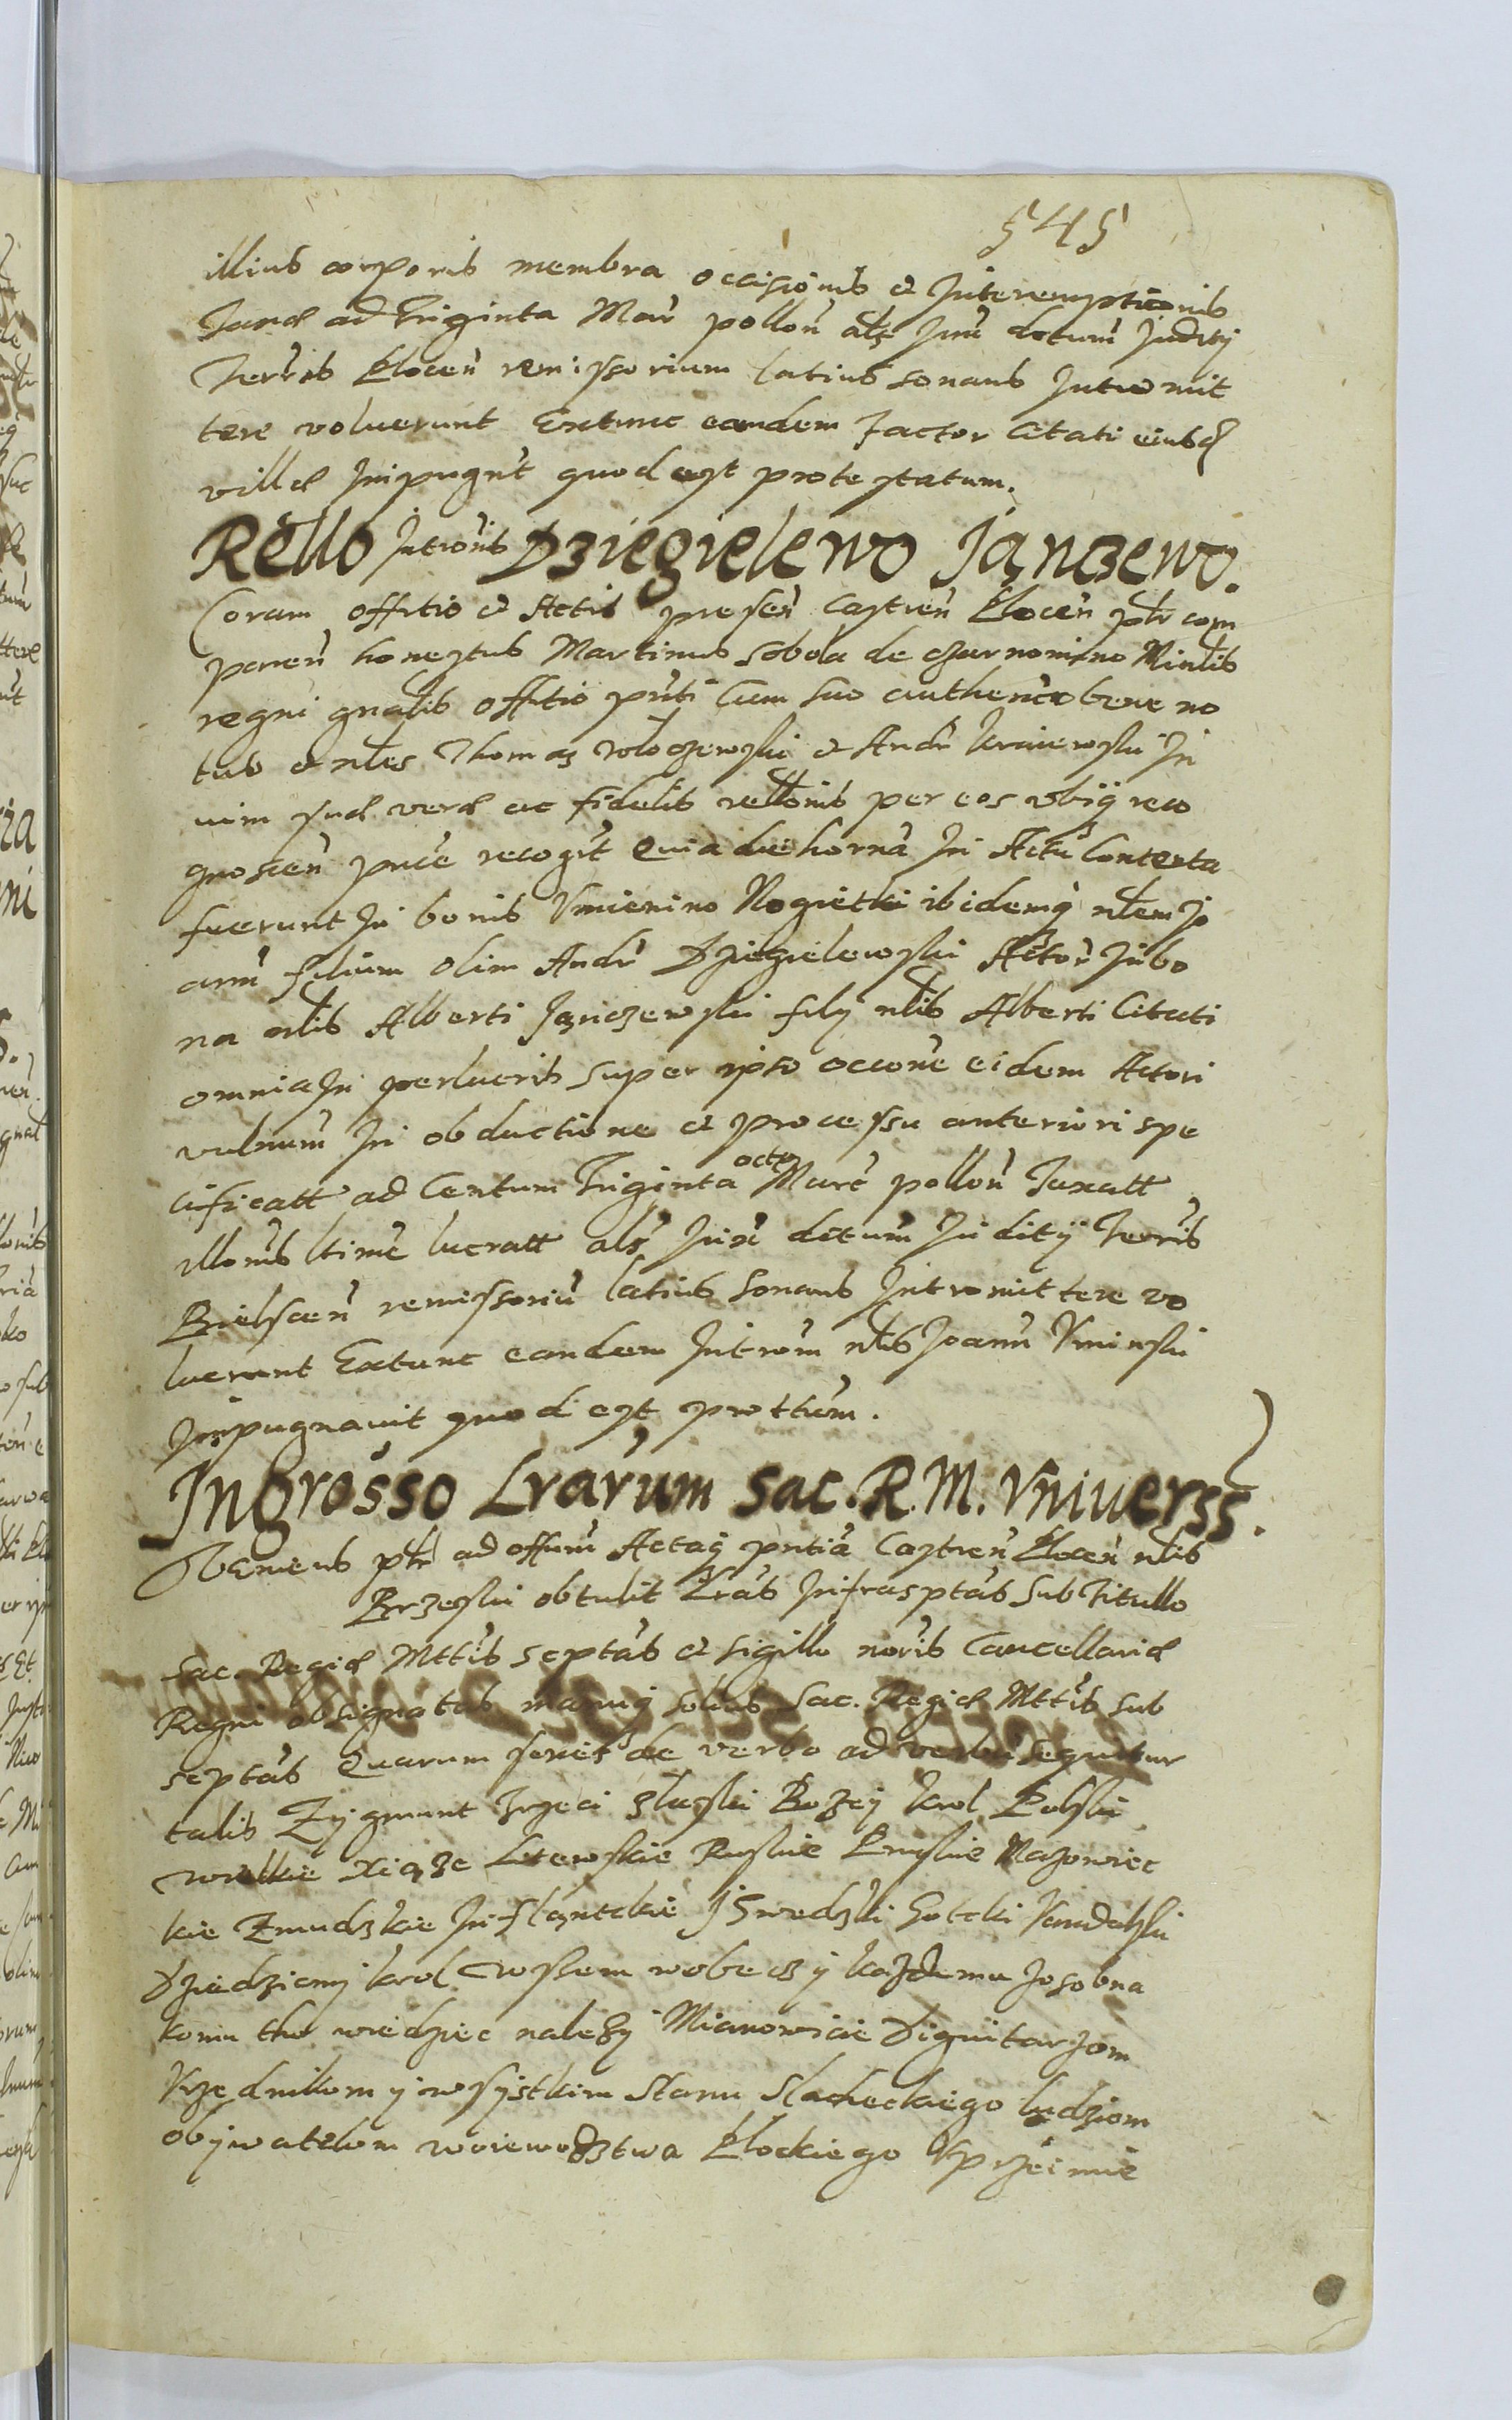 545
illius corporis membra occisionis et Interemptionis
ad Triginta Mar pollon als Juxta detum Juditij
Terris Plocen remissorium latius sonans Intromit
tere voluerunt Extunc eandem factor Citati eiusd
villæ Impugnt quod est protestatum.
Rello Intronis Dziegielewo Janczewo.
Coram offitio et Actis presen Castren Plocen ptr com
paren honestus Martinus Sobola de Czarnomino Minlis
regni gnalis offitio pnti Cum suo authenco bene no
tus et nles Thomas et Andr Kraiewski In
vim suæ veræ ac fidelis rellonis per eos ubiq reco
gnoscen pnce recogt Quia die horna In Actu Contenta
fuerunt In bonis Umienino Nogietki ibidemq nlem Jo
ann filium olim Andr Dziegielewski Actor In bo
na nlis Alberti Janczewski filij nlis Alberti Citati
omnia In perlucris super ipso occone eidem Actori
vulnum In obductione et processu anteriori spe
cificatt ad Centum Triginta octo Marc pollon Taxatt
illonis ltime lucratt als Juxta detum Juditij Terris
Bielscen remissoriu latius sonans Intromittere vo
luerunt Extunc eandem Introm nlis Joann Uminski
Impugnavit quod est prottum.
Ingrosso Lrarum Sac. R. M. Vniverss.
Veniens ptr ad offum Actaq pntia Castren Plocen nlis
Brzeski obtulit Lras Infrasptas sub Titullo
Sac. Regiæ Mttis scptas et sigillo noris Cancellariæ
Regni obsignatas manuq solius Sac. Regiæ Mttis sub
scptas Quarum series de verbo ad verbu sequitur
talis Zygmunt Trzeci z łaski Bozej Krol Polski
wielkie Xiąże Litewskie Ruskie Pruskie Mazowiec
kie Zmudzkie Inflantckie J Swedzki Gotcki Vandalski
Dziedzicznj krol Wszem wobecz y każdemu zosobna
komu tho wiedziec nalezy Mianowicie Dignitarzom
Vrzednikom y wszystkim Stanu Slacheckiego ludziom
obywatelom woiewodztwa Plockiego Vprzeimie